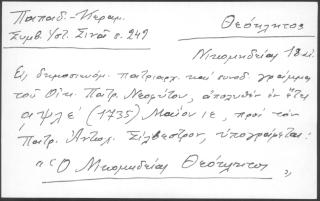 Παπαδ.-Κεραμ.
Συμβ. Ἱστ. Σινᾶ σ. 249
Θεόκλητος
Νικομηδείας 18 αἰ.
Εἰς δημοσιευόμ. πατριαρχ. καὶ συνοδ. γράμμα
τοῦ Οἰκ. Πατρ. Νεοφύτου, ἀπολυθὲν ἐν ἔτει
αψλε (1735) Μαΐου ιε, πρὸς τὸν
Πατρ. Ἀντιοχ. Σίλβεστρον, ὑπογράφεται:
"Ὁ Νικομηδείας Θεόκλητος"